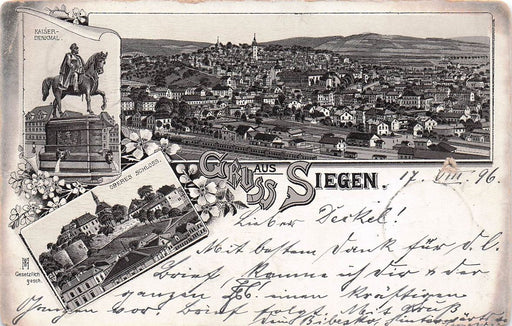 KAISER-
DENKMAL.
OBERES SCHLOSS.
GRUSS AUS SIEGEN.
17. VIII. 96.
Lieber Deckel!
Mit bestem Dank für d. l.
Brief komme ich dir & der
ganzen einen kräftigen
vor. Brief folgt. Mit Gruß
Gesetzlich
gesch.